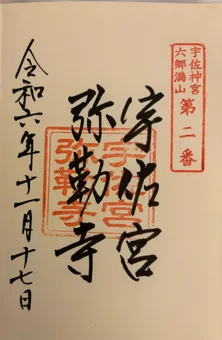 宇佐神宮
六郷満山
第二番
宇佐宮
弥勒寺
宇佐宮
弥勒寺
令和六年十一月十七日